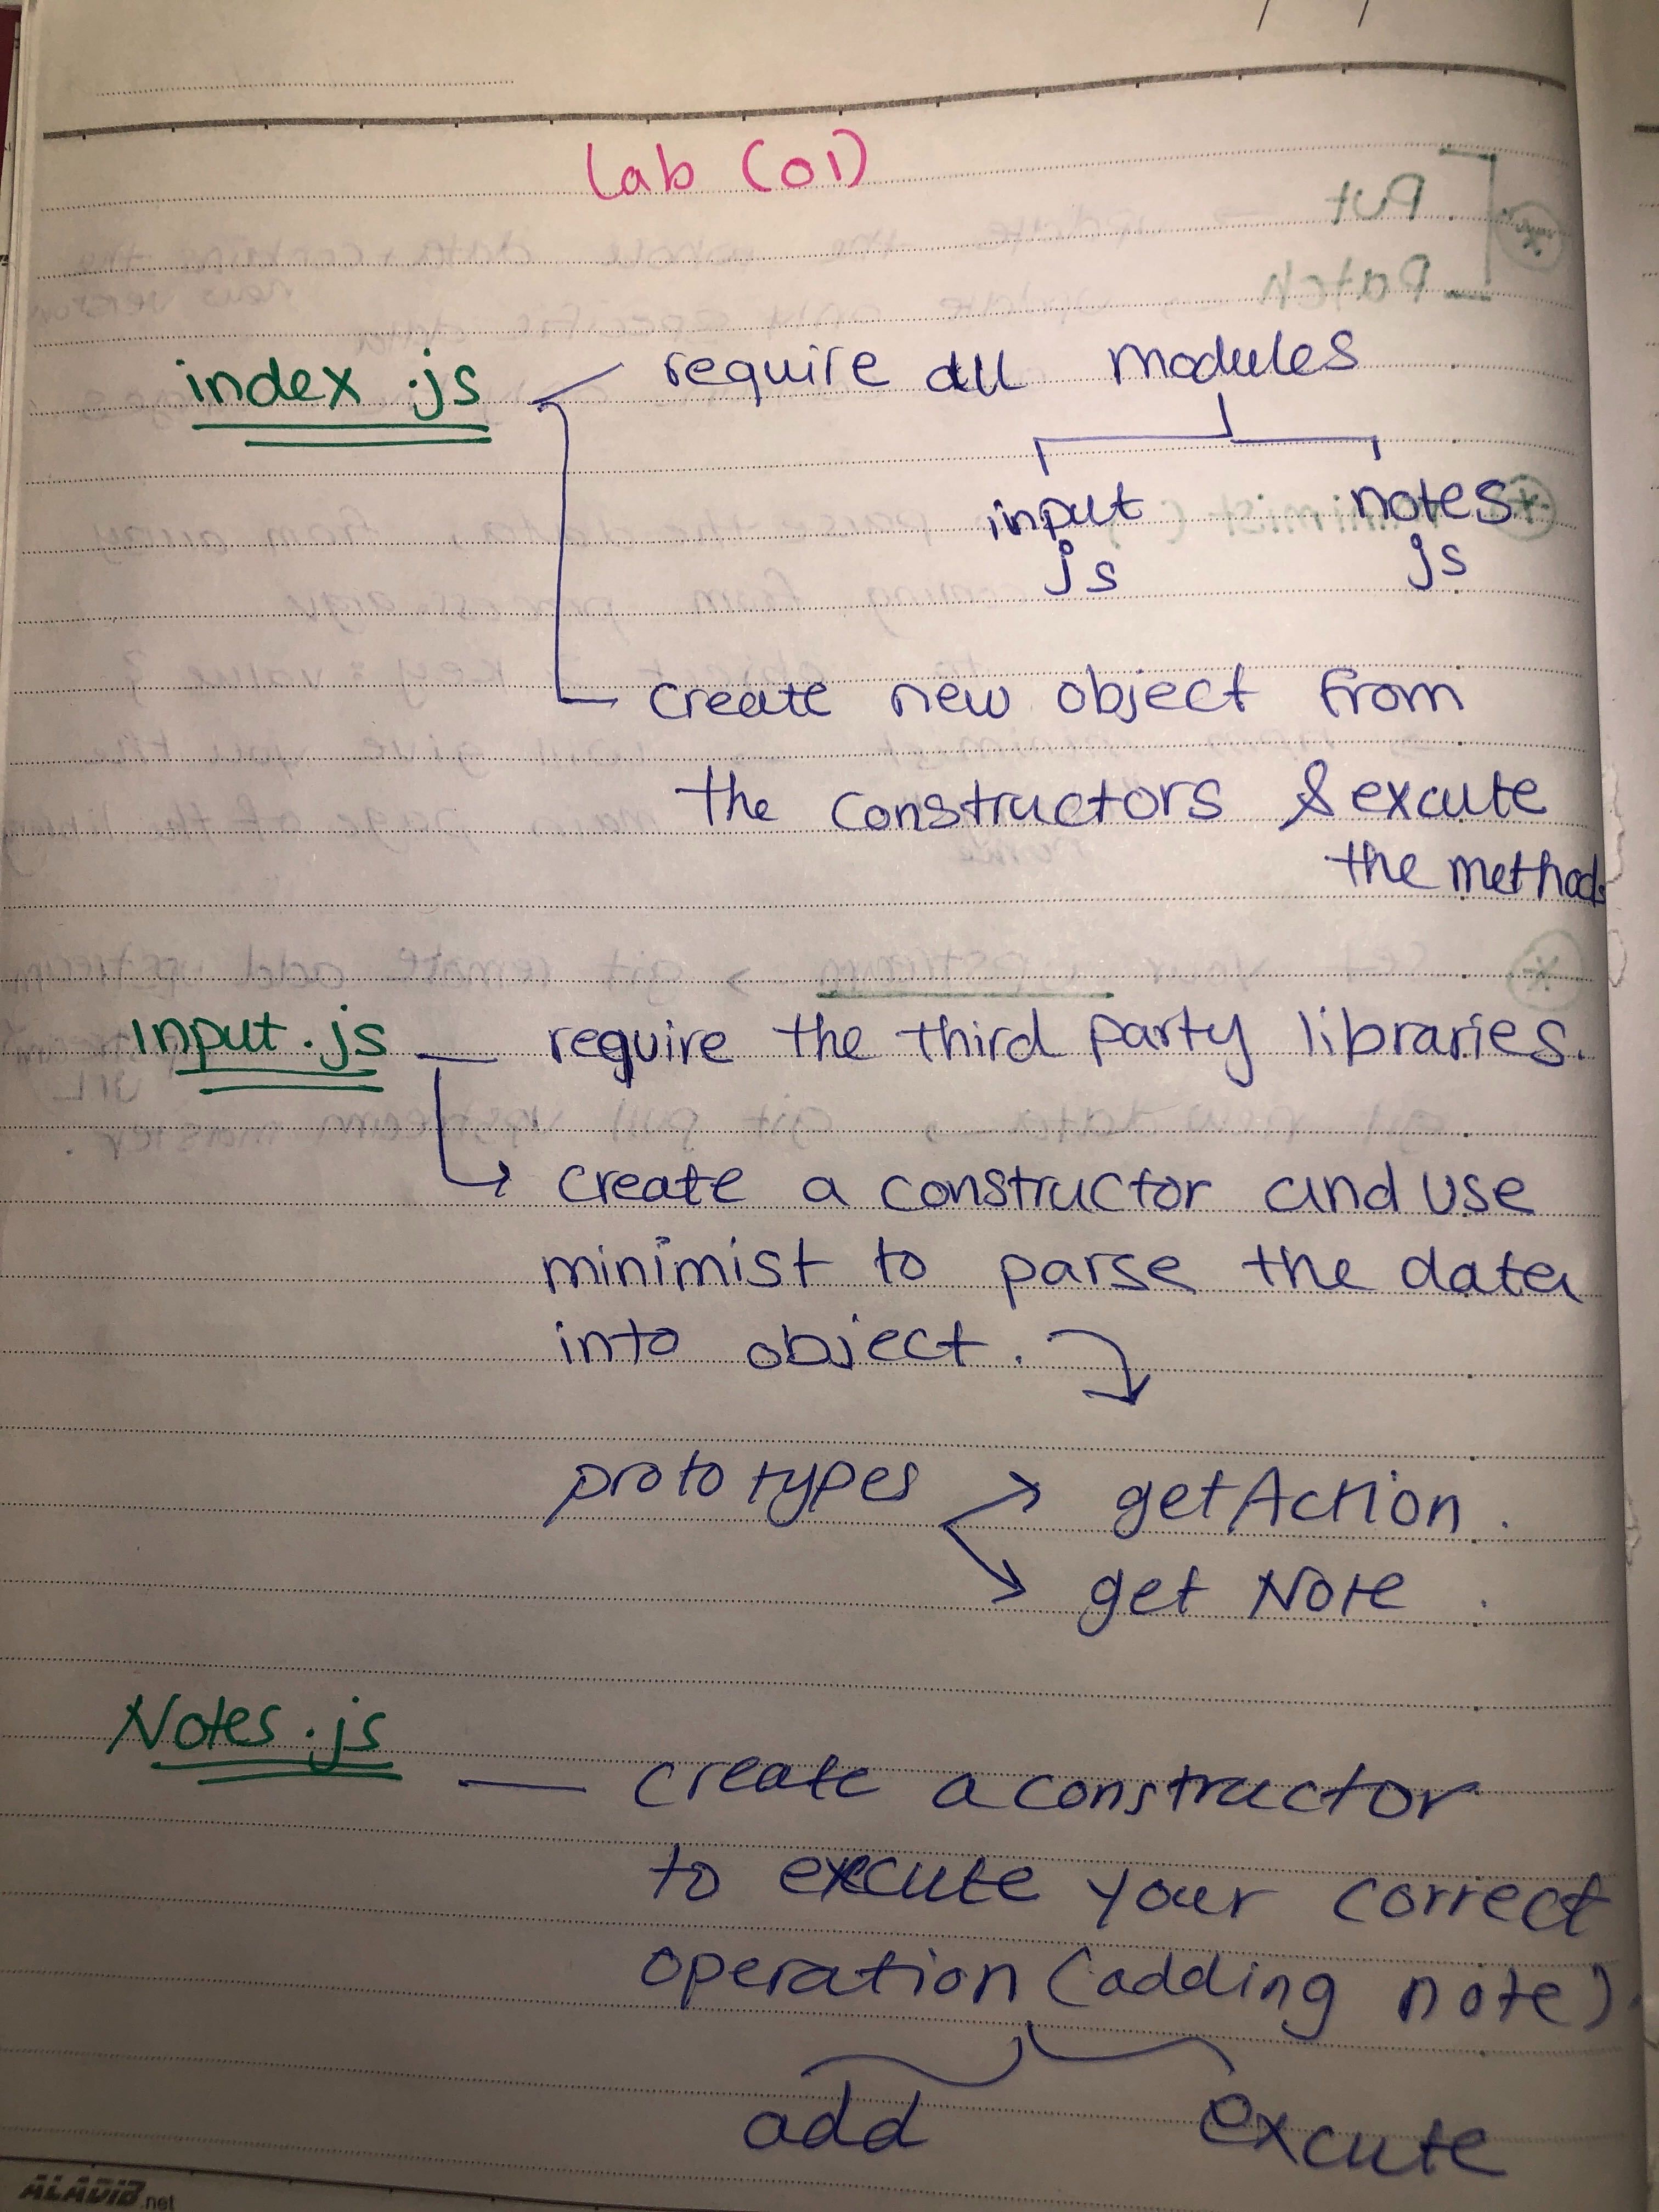 Lab (01)
index.js
require all modules
input notes
js js
create new object from
the constructors & excute
the methods
input.js
require the third party libraries.
create a constructor and use
minimist to parse the data
into object.
prototypes
getAction.
get Note.
Notes.js
create a constructor
to excute your correct
operation (adding note).
add excute
ALADIB.net